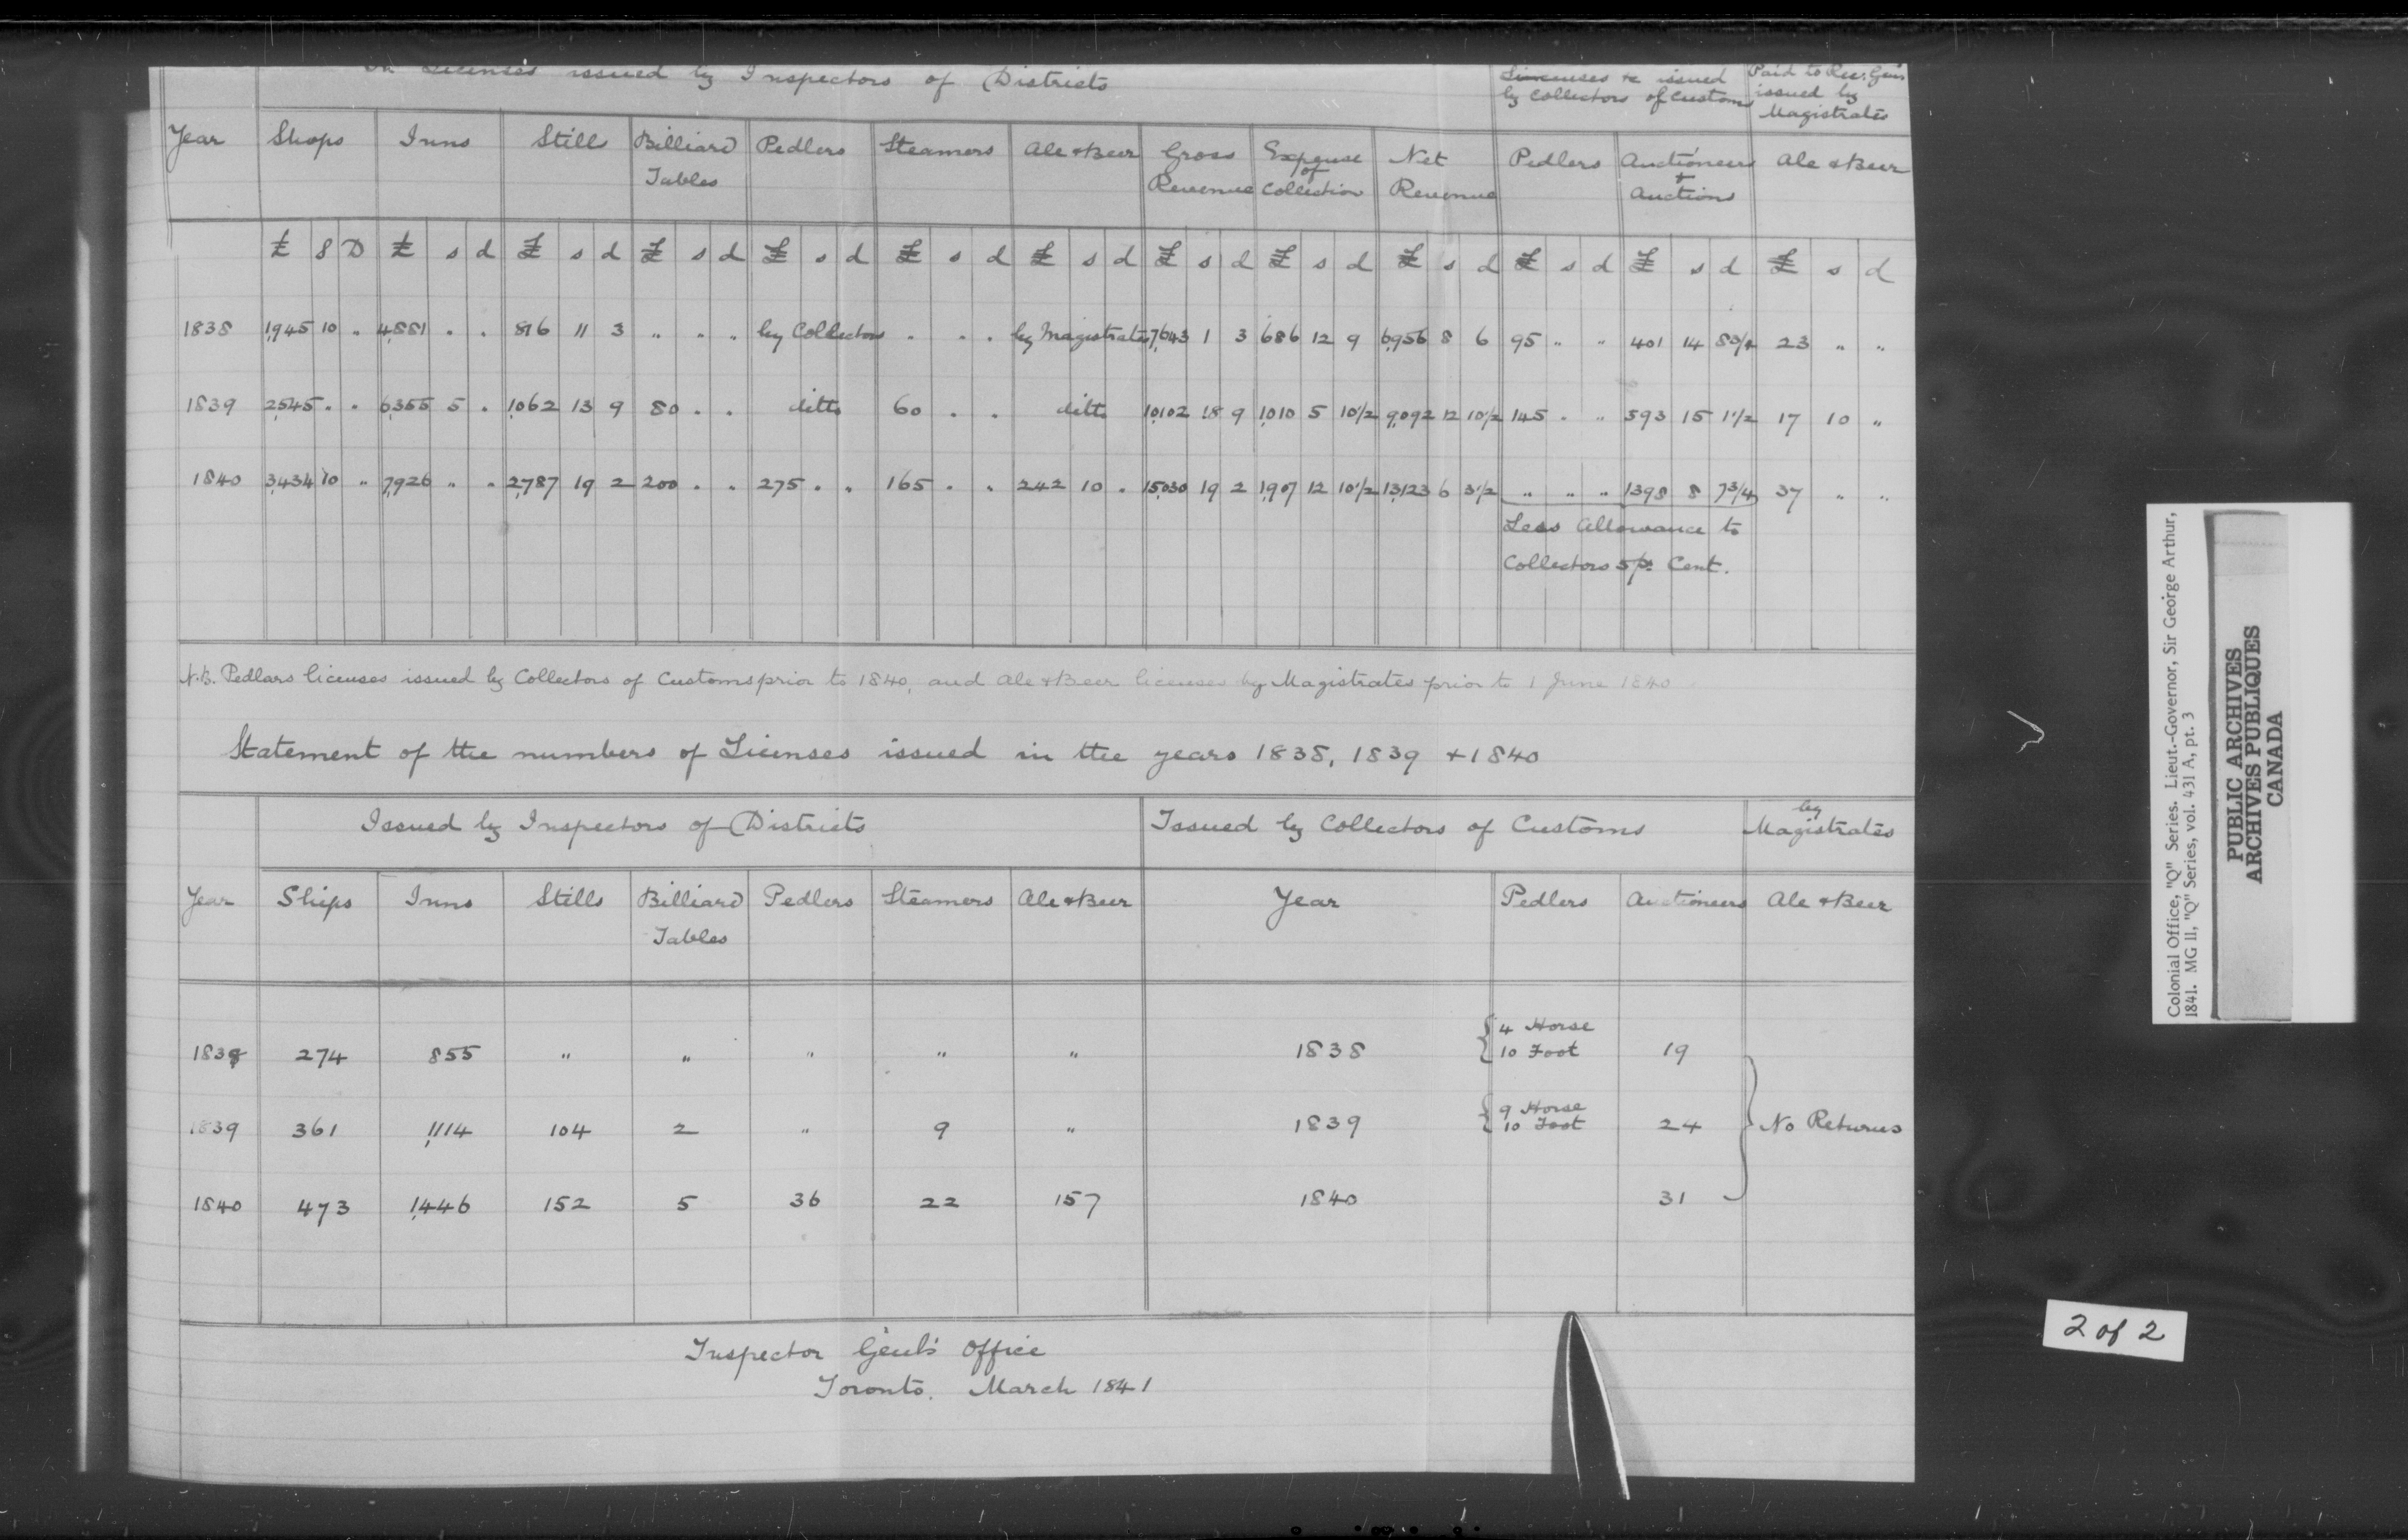 on Licenses issued by Inspectors of Districts
Licenses &c issued by Collectors of Customs
Paid to Rec. Gen. issued by Magistrates
Year Shops Inns Still Billiard Tables Pedlers Steamers Ale & Beer Gross Revenue Expense of Collection Net Revenue Pedlers Auctioneers & Auctions Ale & Beer
£ S D £ s d £ s d £ s d £ s d £ s d £ s d £ s d £ s d £ s d £ s d £ s d £ s d
1838 1,945 10 " 4,881 " " 816 11 3 " " " by Collectors " " " by Magistrates 7,643 1 3 686 12 9 6,956 8 6 95 " " 401 14 8 3/4 23 " "
1839 2,545 " " 6,355 5 " 1,062 13 9 80 " " ditto 60 " " ditto 10,102 18 9 1,010 5 10 1/2 9,092 12 10 1/2 145 " " 593 15 1 1/2 17 10 "
1840 3,434 10 " 7,926 " " 2,787 19 2 200 " " 275 " " 165 " " 242 10 " 15,030 19 2 1,907 12 10 1/2 13,123 6 3 1/2 " " " 1398 8 7 3/4 37 " "
Less Allowance to
Collectors 5 p. Cent.
N.B. Pedlars licenses issued by Collectors of Customs prior to 1840, and Ale & Beer licenses by Magistrates prior to 1 June 1840
Statement of the numbers of Licenses issued in the years 1838, 1839 + 1840
Issued by Inspectors of Districts Issued by Collectors of Customs by Magistrates
Year Ships Inns Stills Billiard Tables Pedlers Steamers Ale & Beer Year Pedlers Auctioneers Ale & Beer
1838 274 855 " " " " " 1838 { 4 Horse 10 Foot 19
1839 361 1,114 104 2 " 9 " 1839 { 9 Horse 10 Foot 24 } No Returns
1840 473 1,446 152 5 36 22 157 1840 31
Inspector Genl's Office
Toronto. March 1841
Colonial Office, "Q" Series. Lieut.-Governor, Sir George Arthur,
1841. MG 11, "Q" Series, vol. 431 A, pt. 3
PUBLIC ARCHIVES
ARCHIVES PUBLIQUES
CANADA
2 of 2